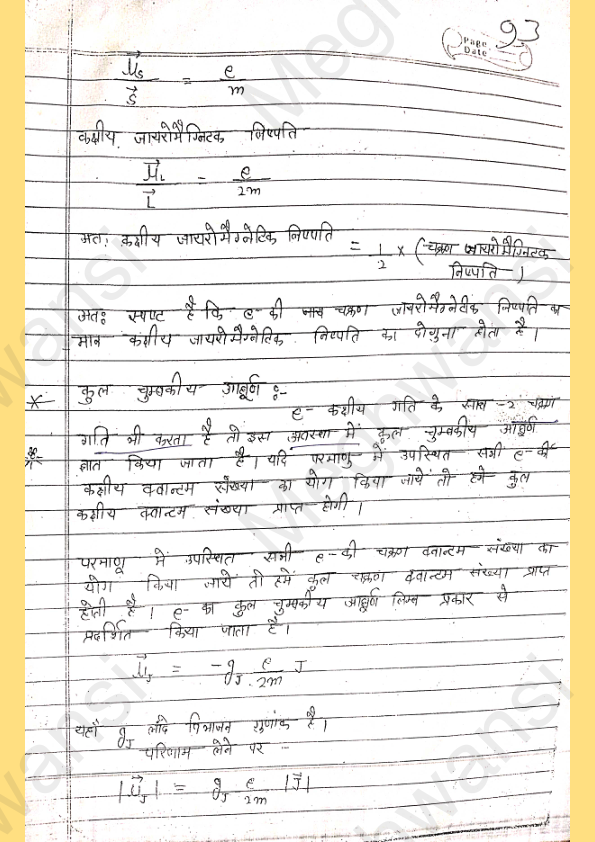 Page 93
Date
μ⃗s / S⃗ = e / m
कक्षीय जायरोमैग्निटक निष्पति
μ⃗L / L⃗ = e / 2m
अतः कक्षीय जायरोमैग्नेटिक निष्पति = 1/2 × (चक्रण जायरोमैग्निटक
निष्पति)
अतः स्पष्ट है कि e- की चक्रण जायरोमैग्नेटिक निष्पति का
मान कक्षीय जायरोमैग्नेटिक निष्पति का दोगुना होता है।
* कुल चुम्बकीय आघूर्ण :-
e- कक्षीय गति के साथ-2 चक्रण
गति भी करता है तो इस अवस्था में कुल चुम्बकीय आघूर्ण
ज्ञात किया जाता है। यदि परमाणु में उपस्थित सभी e- की
कक्षीय क्वान्टम संख्या का योग किया जाये तो हमे कुल
कक्षीय क्वान्टम संख्या प्राप्त होगी।
परमाणू में उपस्थित सभी e- की चक्रण क्वान्टम संख्या का
योग किया जाये तो हमें कुल चक्रण क्वान्टम संख्या प्राप्त
होती है। e- का कुल चुम्बकीय आघूर्ण निम्न प्रकार से
प्रदर्शित किया जाता है।
μ⃗J = -gJ e/2m J
यहाँ gJ लांदे विभाजन गुणांक है।
परिणाम लेने पर -
|μ⃗J| = gJ e/2m |J⃗|